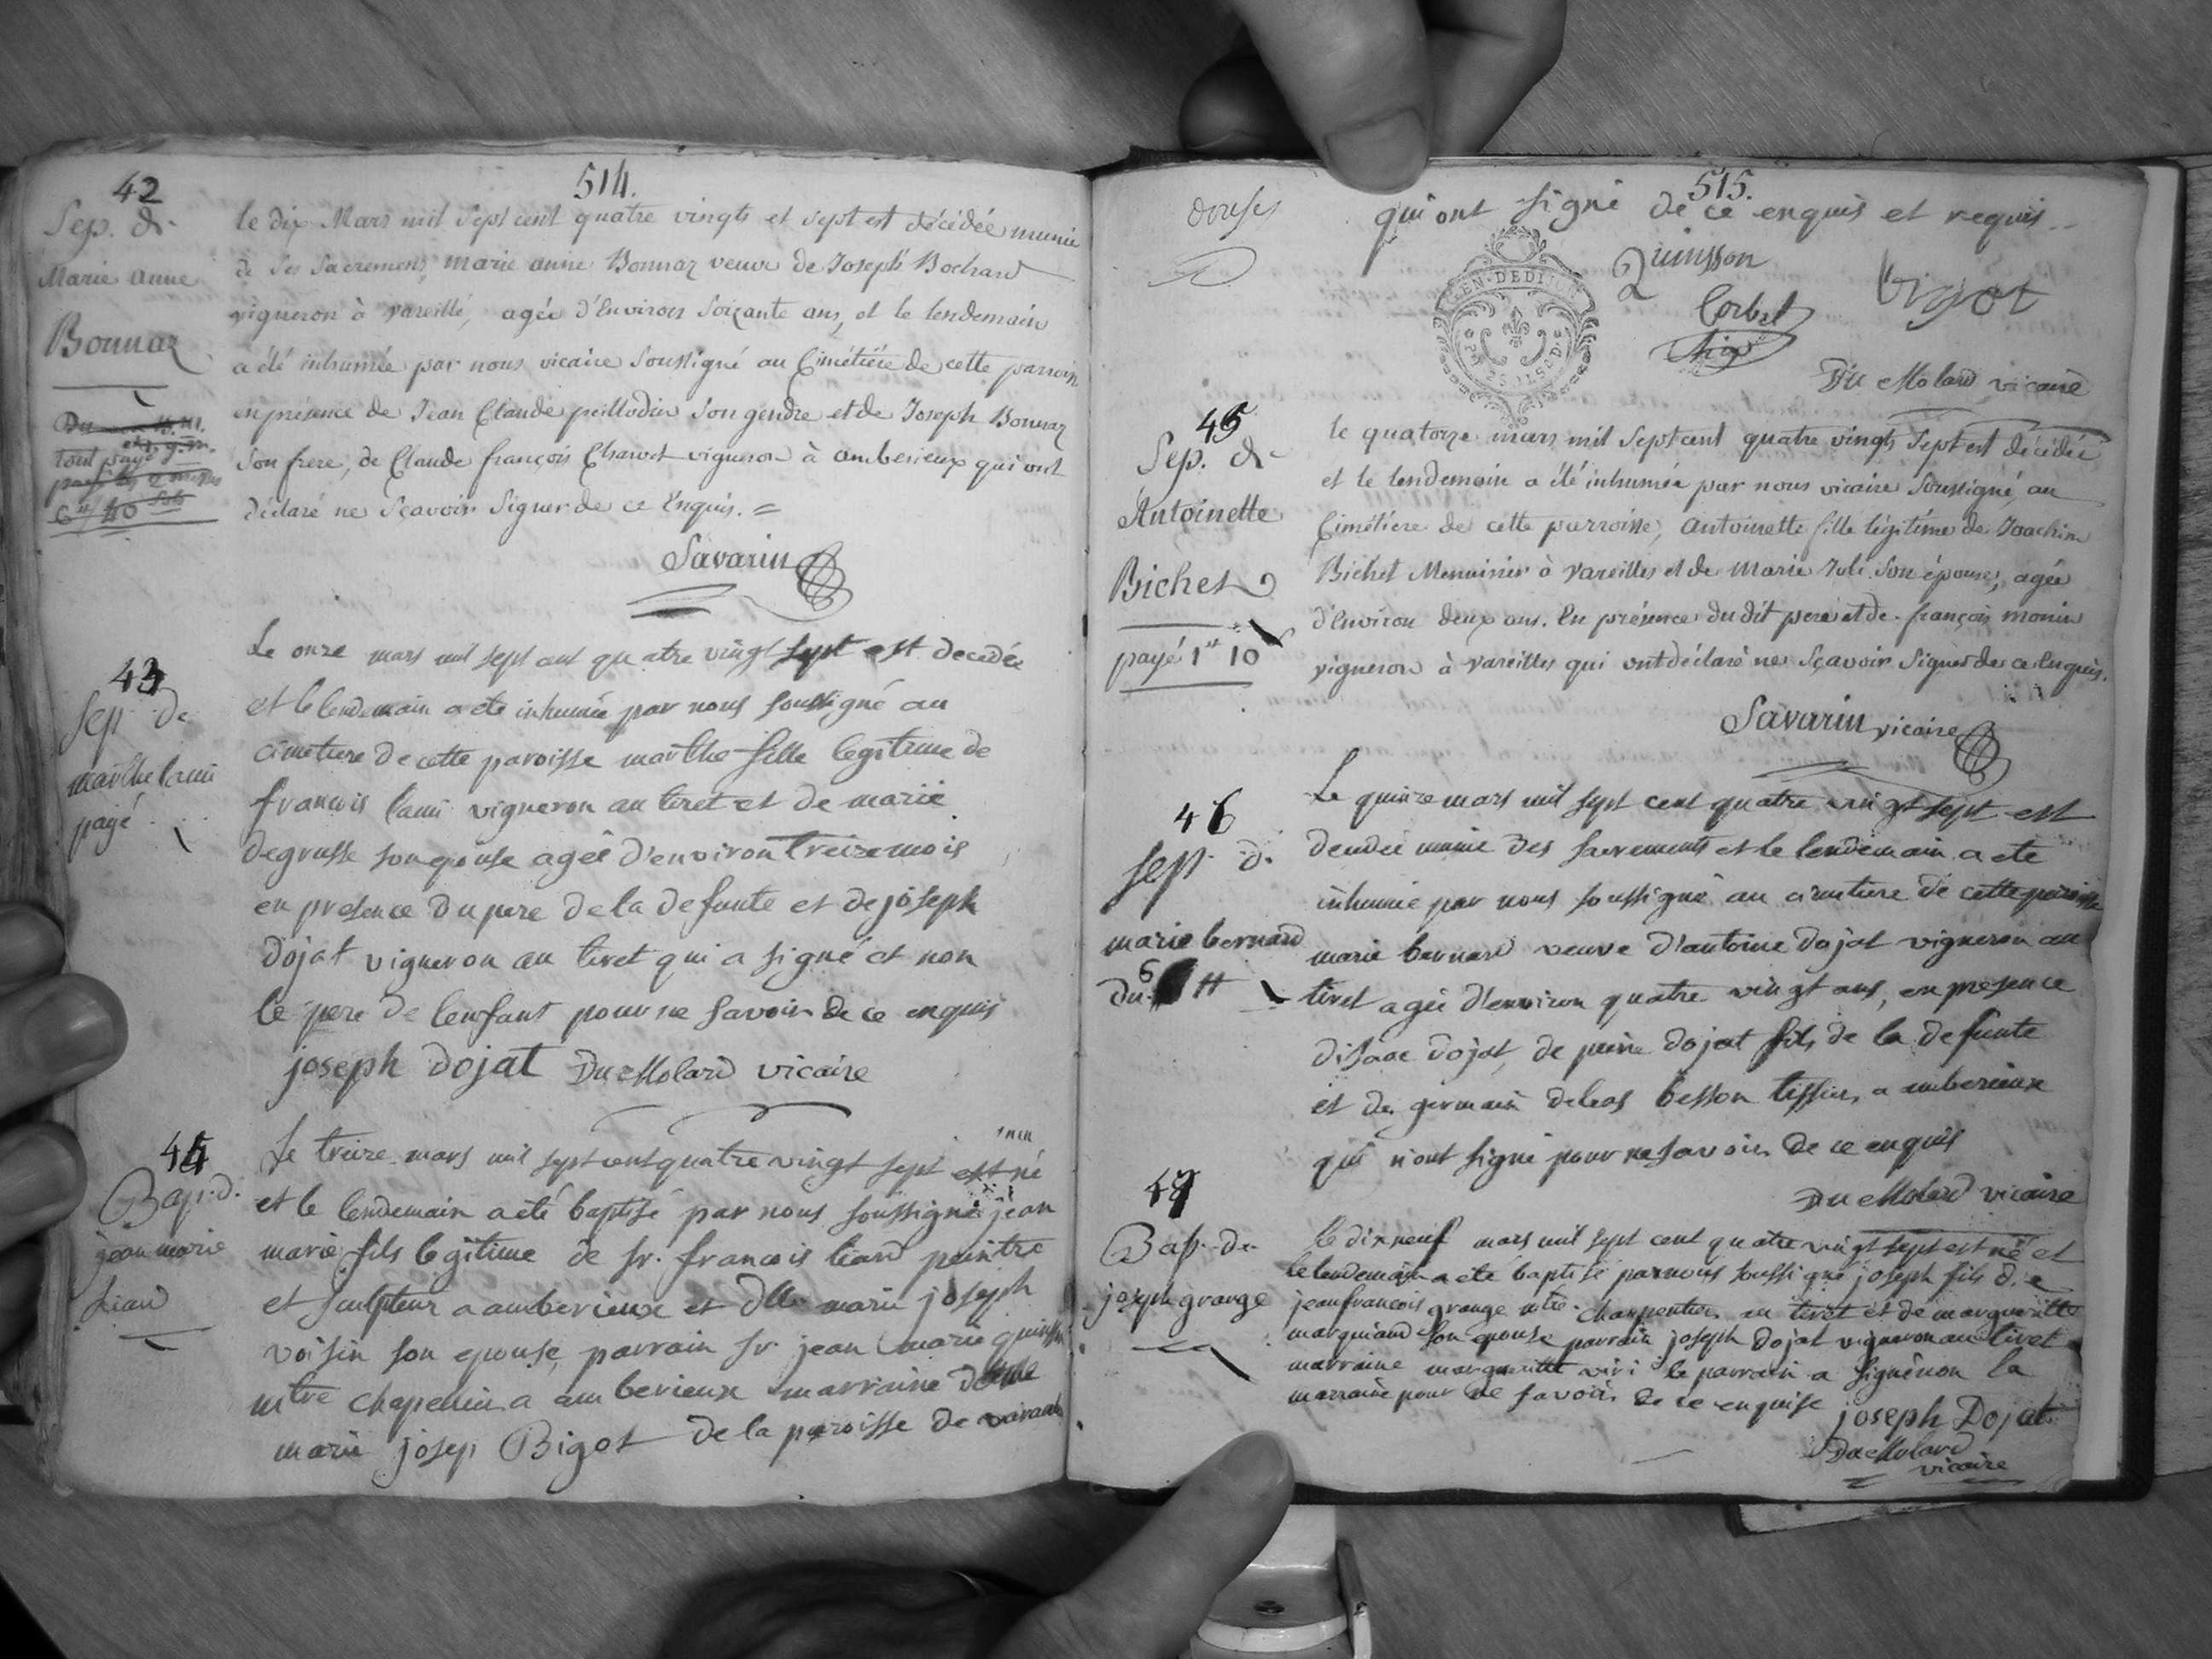 514.
42
Sep. de
Marie anne
Bonnaz
le dix Mars mil Sept cent quatre vingts et sept est décédée munie
de Ses Sacremens, marie anne Bonnaz veuve de Joseph Bochard
vigneron à vareille, agée d'Environ Soixante ans, et le lendemain
a été inhumée par nous vicaire Soussigné au Cimétiére de cette parroisse
en présence de Jean Claude peillodin Son gendre et de Joseph Bonnaz
Son frere, de Claude françois Charvet vigneron à amberieux qui ont
déclaré ne Sçavoir Signer de ce Enquis. =
Savarin
43
Sep de
marthe lami
payé
Le onze mars mil sept cent quatre vingt sept est decedée
et le lendemain a ete inhumée par nous soussigné au
cimetiere de cette paroisse marthe fille legitime de
francois lami vigneron au tiret et de marie
degrusse son epouse agée d'environ treize mois
en presence du pere de la defunte et de joseph
dojat vigneron au tiret qui a signé et non
le pere de lenfant pour ne savoir de ce enquis
joseph dojat Du Molard vicaire
44
Bap. d.
jean marie
liand
Le treize mars mil sept cent quatre vingt sept est né
et le lendemain a eté baptisé par nous soussigné jean
marie fils legitime de sr. francois liand peintre
et sculpteur a amberieux et dlle marie joseph
voisin son epouse, parrain sr jean marie quinsson
mtre chapelier a amberieux marraine dame
marie josep Bigot de la paroisse de
515.
qui ont signé de ce enquis et requis
Quinsson
Corbet
bigot
GEN. DE DIJON
Du Molard vicaire
45
Sep. de
Antoinette
Bichet
payé 1tt 10
le quatorze mars mil Sept cent quatre vingts Sept est décédée
et le lendemain a été inhumée par nous vicaire Soussigné, au
Cimétiere de cette parroisse, Antoinette fille légitime de Joachim
Bichet Menuisier à vareilles et de Marie Joli Son épouse, agée
d'Environ deux ans. En présence du dit pere et de françois monin
vigneron à vareilles qui ont déclaré ne Sçavoir Signer de ce Enquis.
Savarin vicaire
46
sep. d.
marie bernard
du 6 tt
Le quinze mars mil sept cent quatre vingt sept est
decedée munie des sacrements et le lendemain a ete
inhumée par nous soussigné au cimetiere de cette paroisse
marie bernard veuve d'antoine dojat vigneron au
tiret agée d'environ quatre vingt ans, en presence
d'isaac dojat, de pierre dojat fils de la defunte
et de germain besson tissier a amberieux
qui n'ont signé pour ne savoir de ce enquis
Du Molard vicaire
47
Bap. de
joseph grange
Le dix neuf mars mil sept cent quatre vingt sept est né et
le lendemain a ete baptisé par nous soussigné joseph fils de
jean francois grange mtre. charpentier au tiret et de margueritte
marquiand son epouse parrain joseph dojat vigneron au tiret
marraine margueritte vivi le parrain a signé non la
marraine pour ne savoir de ce enquise
joseph Dojat
Du Molard
vicaire